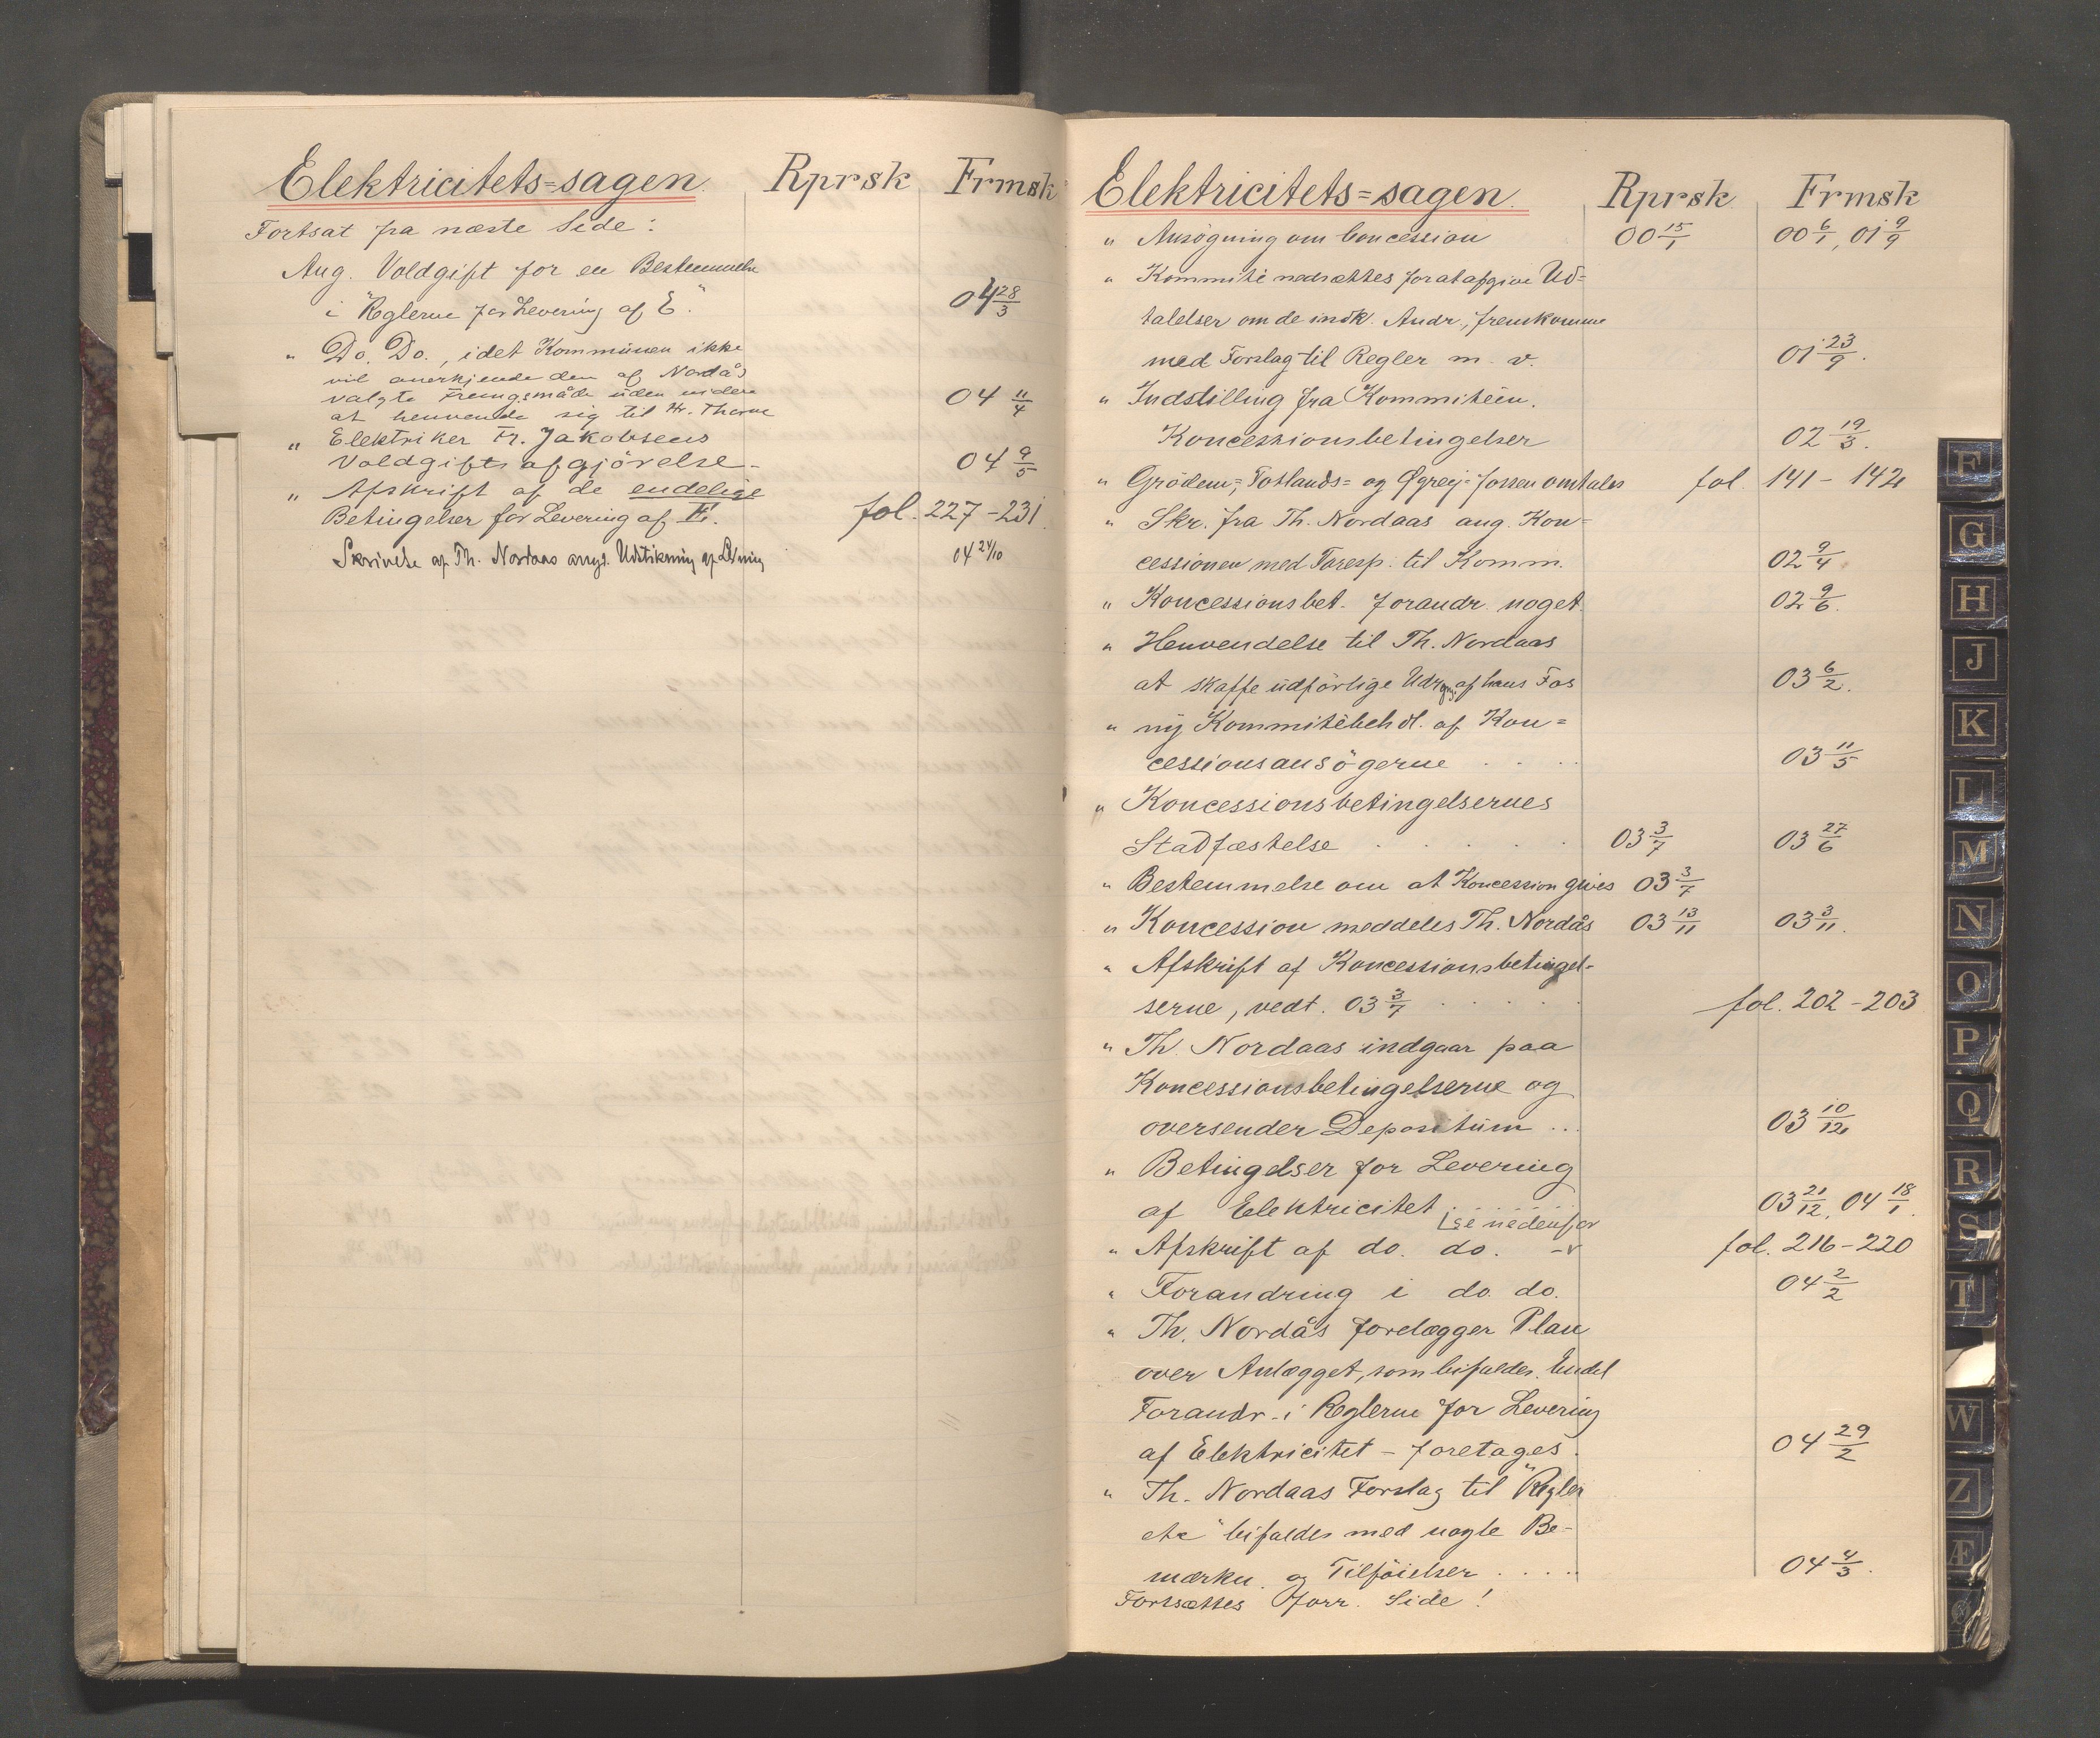 Elektricitets=sagen. Rprsk Frmsk
Fortsat fra næste Side:
Ang. Voldgift for en Bestemmelse
i "Reglerne for Levering af E." 04 28/3
" Do. Do., idet Kommunen ikke
vil anerkjende den af Nordås
valgte Fremgsmåde uden videre
at henvende sig til Hr. Thorne 04 11/4
" Elektriker Fr. Jakobsens
Voldgiftsafgjörelse - 04 9/5
" Afskrift af de endelige
Betingelser for Levering af E. fol. 227-231.
Skrivelse af Th. Nordaas angd. Udstikning af Ledning 04 24/10
Elektricitets=sagen. Rprsk. Frmsk
" Ansögning om Concession 00 15/1 00 6/1, 01 9/9
" Kommité nedsættes forat afgive Ud=
talelser om de indk. Andr., fremkomme
med Forslag til Regler m. v. 01 23/9.
" Indstilling fra Kommitéen.
Koncessionsbetingelser 02 19/3.
" Grödem=, Fotlands= og Øgrey=fossen omtales fol. 141-142
" Skr. fra Th. Nordaas ang. Kon=
cessionen med Foresp. til Komm. 02 9/4
" Koncessionsbet. forandr. noget. 02 9/6.
" Henvendelse til Th. Nordaas
at skaffe udförlige Udregng. af hans Fos 03 6/2.
" ny Kommitébehdl. af Kon=
cessionsansögerne . . . 03 11/5
" Koncessionsbetingelsernes
Stadfæstelse . . . . . 03 3/7 03 27/6
" Bestemmelse om at Koncession gives 03 3/7
" Koncession meddeles Th. Nordås 03 13/11 03 3/11.
" Afskrift af Koncessionsbetingel-
serne, vedt. 03 3/7 . . . . . fol. 202-203
" Th. Nordaas indgaar paa
Koncessionsbetingelserne og
oversender Depositum ... 03 10/12
" Betingelser for Levering
af Elektricitet . . . . . . 03 21/12, 04 18/1.
se nedenfor
" Afskrift af do. do. -v fol. 216-220
" Forandring i do. do. 04 2/2
" Th. Nordås forelægger Plan
over Anlægget, som bifaldes. Endel
Forandr. i Reglerne for Levering
af Elektricitet - foretages. 04 29/2
" Th. Nordaas Forslag til "Regler
etc" bifaldes med nogle Be-
mærkn. og Tilföielser . . . . . 04 4/3.
Fortsættes forr. Side!
F
G
H
J
K
L
M
N
O
P
Q
R
S
T
W
Z
Æ